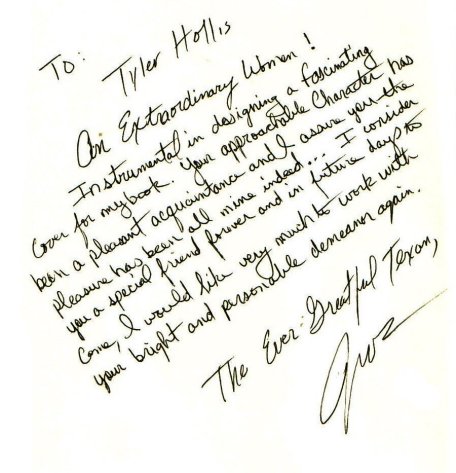 To: Tyler Hollis
An Extraordinary Women!
Instrumental in designing a fascinating
cover for my book. your approachable Character has
been a pleasant acquaintance and I assure you the
pleasure has been all mine indeed... I consider
you a special friend forever and in future days to
come, I would like very much to work with
your bright and personable demeaner again.
The Ever-Greatful Texan,